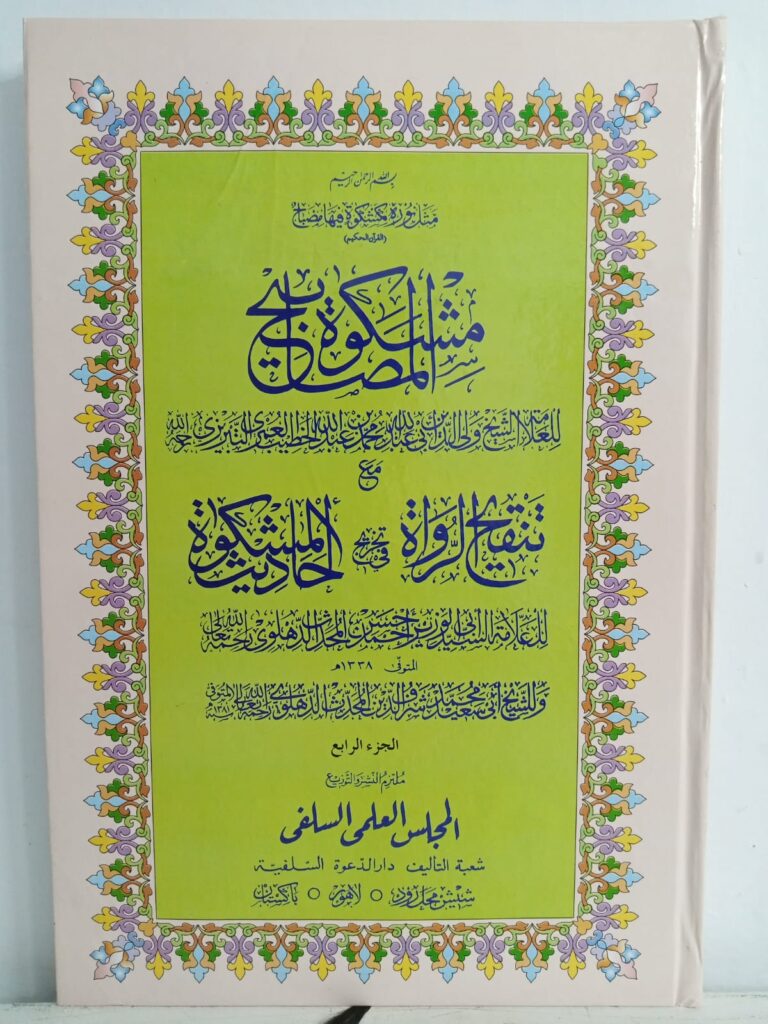 بسم الله الرحمن الرحيم
مثل نوره كمشكوة فيها مصباح
(القرآن الحكيم)
مشكوة المصابيح
للعلامة الشيخ ولي الدين أبي عبد الله محمد بن عبد الله الخطيب العمري التبريزي رحمه الله
مع
تنقيح الرواة في تخريج أحاديث المشكوة
للعلامة السيد أبي الوزير أحمد حسن المحدث الدهلوي رحمه الله تعالى
المتوفى ١٣٣٨هـ
وللشيخ أبي سعيد محمد شرف الدين المحدث الدهلوي رحمه الله تعالى المتوفى سنة ١٣٨١
الجزء الرابع
ملتزم النشر والتوزيع
المجلس العلمى السلفى
شعبة التأليف دار الدعوة السلفية
شيش محل رود ○ لاهور ○ باكستان